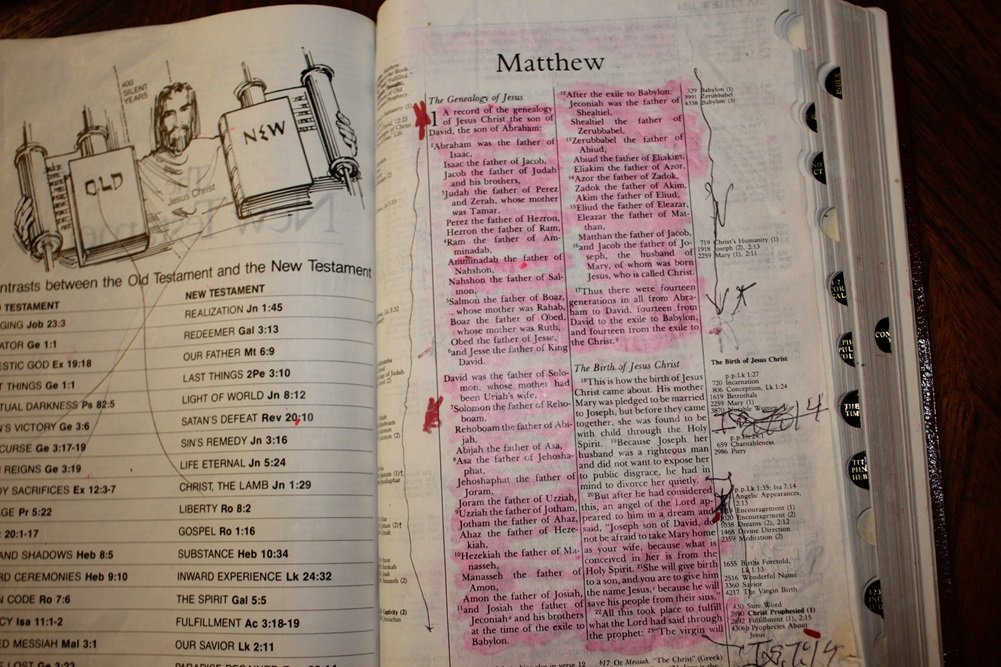 400
SILENT
YEARS
OLD
NEW
Jesus Christ
ntrasts between the Old Testament and the New Testament
TESTAMENT
NEW TESTAMENT
GING Job 23:3
REALIZATION Jn 1:45
ATOR Ge 1:1
REDEEMER Gal 3:13
ESTIC GOD Ex 19:18
OUR FATHER Mt 6:9
T THINGS Ge 1:1
LAST THINGS 2Pe 3:10
TUAL DARKNESS Ps 82:5
LIGHT OF WORLD Jn 8:12
N'S VICTORY Ge 3:6
SATAN'S DEFEAT Rev 20:10
CURSE Ge 3:17-19
SIN'S REMEDY Jn 3:16
REIGNS Ge 3:19
LIFE ETERNAL Jn 5:24
Y SACRIFICES Ex 12:3-7
CHRIST, THE LAMB Jn 1:29
GE Pr 5:22
LIBERTY Ro 8:2
20:1-17
GOSPEL Ro 1:16
AND SHADOWS Heb 8:5
SUBSTANCE Heb 10:34
RD CEREMONIES Heb 9:10
INWARD EXPERIENCE Lk 24:32
N CODE Ro 7:6
THE SPIRIT Gal 5:5
CY Isa 11:1-2
FULFILLMENT Ac 3:18-19
ED MESSIAH Mal 3:1
OUR SAVIOR Lk 2:11
Matthew
The Genealogy of Jesus
1 A record of the genealogy
of Jesus Christ the son of
David, the son of Abraham:
2Abraham was the father of
Isaac,
Isaac the father of Jacob,
Jacob the father of Judah
and his brothers,
3Judah the father of Perez
and Zerah, whose mother
was Tamar,
Perez the father of Hezron,
Hezron the father of Ram,
4Ram the father of Am-
minadab,
Amminadab the father of
Nahshon,
Nahshon the father of Sal-
mon,
5Salmon the father of Boaz,
whose mother was Rahab,
Boaz the father of Obed,
whose mother was Ruth,
Obed the father of Jesse,
6and Jesse the father of King
David.
David was the father of Solo-
mon, whose mother had
been Uriah's wife,
7Solomon the father of Reho-
boam,
Rehoboam the father of Abi-
jah,
Abijah the father of Asa,
8Asa the father of Jehosha-
phat,
Jehoshaphat the father of
Joram,
Joram the father of Uzziah,
9Uzziah the father of Jotham,
Jotham the father of Ahaz,
Ahaz the father of Heze-
kiah,
10Hezekiah the father of Ma-
nasseh,
Manasseh the father of
Amon,
Amon the father of Josiah,
11and Josiah the father of
Jeconiah and his brothers
at the time of the exile to
Babylon.
12After the exile to Babylon:
Jeconiah was the father of
Shealtiel,
Shealtiel the father of
Zerubbabel,
13Zerubbabel the father of
Abiud,
Abiud the father of Eliakim,
Eliakim the father of Azor,
14Azor the father of Zadok,
Zadok the father of Akim,
Akim the father of Eliud,
15Eliud the father of Eleazar,
Eleazar the father of Mat-
than,
Matthan the father of Jacob,
16and Jacob the father of Jo-
seph, the husband of
Mary, of whom was born
Jesus, who is called Christ.
17Thus there were fourteen
generations in all from Abra-
ham to David, fourteen from
David to the exile to Babylon,
and fourteen from the exile to
the Christ.
The Birth of Jesus Christ
18This is how the birth of Jesus
Christ came about. His mother
Mary was pledged to be married
to Joseph, but before they came
together, she was found to be
with child through the Holy
Spirit. 19Because Joseph her
husband was a righteous man
and did not want to expose her
to public disgrace, he had in
mind to divorce her quietly.
20But after he had considered
this, an angel of the Lord ap-
peared to him in a dream and
said, "Joseph son of David, do
not be afraid to take Mary home
as your wife, because what is
conceived in her is from the
Holy Spirit. 21She will give birth
to a son, and you are to give him
the name Jesus, because he will
save his people from their sins."
22All this took place to fulfill
what the Lord had said through
the prophet: 23"The virgin will
329 Babylon (1)
3991 Zerubbabel
4338 Babylon (3)
719 Christ's Humanity (1)
1918 Joseph (2), 2:13
2259 Mary (1), 2:11
The Birth of Jesus Christ
p.p.Lk 1:27
720 Incarnation
806 Conception, Lk 1:24
1619 Betrothals
2259 Mary (1)
659 Charitableness
2986 Piety
p.p.Lk 1:35; Isa 7:14
Angelic Appearances,
2:13
Encouragement (1)
Encouragement (2)
Dreams (2), 2:12
1468 Divine Direction
2359 Meditation (2)
1655 Births Foretold,
Lk 1:13
2516 Wonderful Name
3360 Savior
4217 The Virgin Birth
430 Sure Word
Christ Prophesied (1)
2892 Fulfillment (1), 2:15
Prophecies About
Jesus
Is 7:14